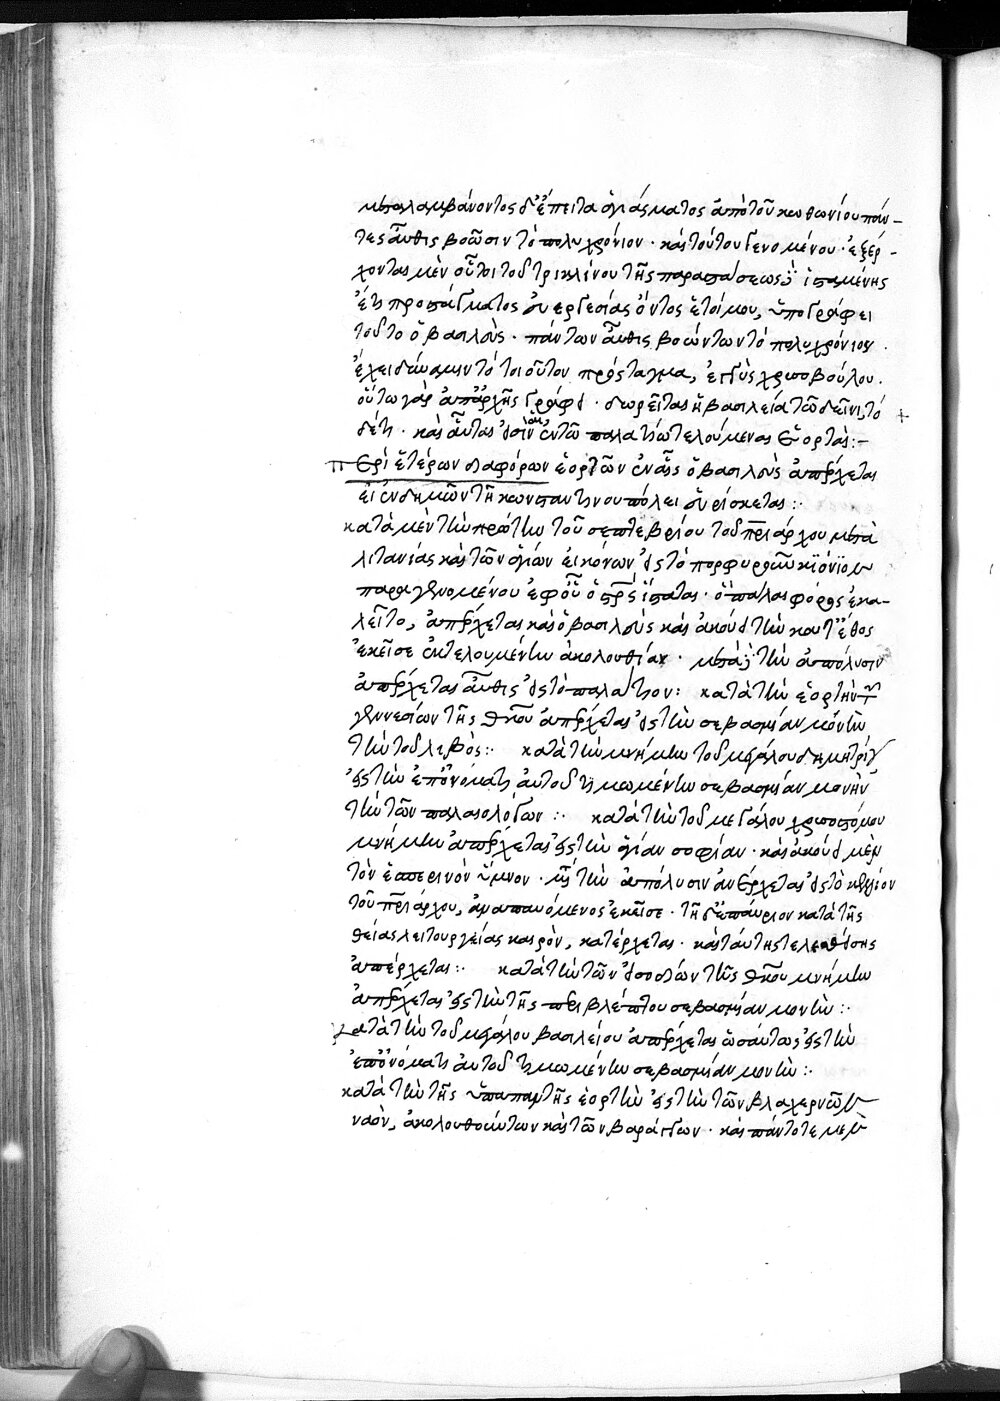 μεταλαμβάνοντος δ' ἔπειτα ἁγιάσματος ἀπὸ τοῦ κωθωνίου πάν-
τες αὖθις βοῶσιν τὸ πολυχρόνιον· καὶ τούτου γενομένου· ἐξέρ-
χονται μὲν οὗτοι τοῦ τρικλίνου τῆς παραστάσεως δὲ ἱσταμένης
ἔτι προστάγματος εὐεργεσίας ὄντος ἑτοίμου, ὑπογράφει
τοῦτο ὁ βασιλεὺς· πάντων αὖθις βοώντων τὸ πολυχρόνιον·
ἔχει δύναμιν τὸ τοιοῦτον πρόσταγμα, ἐγγὺς χρυσοβούλου.
οὕτω γὰρ ἀπαρχῆς γράφει· δωρεῖται ἡ βασιλεία τῶ δεῖνι, τό
δέ τι· καὶ αὗται εἰσὶν αἱ ἐντῶ παλατίω τελούμεναι ἑορταί:-
Περὶ ἑτέρων διαφόρων ἑορτῶν ἐν αἷς ὁ βασιλεὺς ἀπέρχεται
εἰ ἐνδημῶν τῆ κωνσταντινουπόλει εὑρίσκεται:
κατὰ μὲν τὴν πρώτην τοῦ σεπτεβρίου τοῦ πριάρχου μετὰ
λιτανίας καὶ τῶν ἁγίων εἰκόνων εἰς τὸ πορφυροῦν κϊόνϊον
παραγενομένου ἐφ οὗ ὁ σταυρός ἵσταται· ὃ πάλαι φόρος ἐκα-
λεῖτο, ἀπέρχεται καὶ ὁ βασιλεὺς καὶ ἀκούει τὴν κατ' ἔθος
ἐκεῖσε ἐκτελουμένην ἀκολουθίαν· μετὰ δὲ τὴν ἀπόλυσιν
ἀπέρχεται αὖθις εἰς τὸ παλάτιον: κατὰ τὴν ἑορτὴν τῶν
γεννεσίων τῆς θκου ἀπέρχεται εἰς τὴν σεβασμίαν μονὴν
τὴν τοῦ λιβὸς: κατὰ τὴν μνήμην τοῦ μεγάλου δημητρίου
εἰς τὴν ἐπ' ὀνόματι αὐτοῦ τιμωμένην σεβασμίαν μονὴν
τὴν τῶν παλαιολόγων: κατὰ τὴν τοῦ μεγάλου χρυσοστόμου
μνήμην ἀπέρχεται εἰς τὴν ἁγίαν σοφίαν· καὶ ἀκούει μὲν
τὸν ἑσπερινὸν ὕμνον· μετὰ τὴν ἀπόλυσιν ἀνέρχεται εἰς τὸ κελλίον
τοῦ πριάρχου, ἀναπαυόμενος ἐκεῖσε· τῆ δ' ἐπαύριον κατὰ τῆς
θείας λειτουργείας καιρὸν, κατέρχεται· καὶ ταύτης τελεσθείσης
ἀπέρχεται: κατὰ τὴν τῶν εἰσοδίων τῆς θκου μνήμην
ἀπέρχεται εἰς τὴν τῆς περιβλέπτου σεβασμίαν μονὴν:
Κατὰ τὴν τοῦ μεγάλου βασιλείου ἀπέρχεται ὡσαύτως εἰς τὴν
ἐπ' ὀνόματι αὐτοῦ τιμωμένην σεβασμίαν μονὴν:
κατὰ τὴν τῆς ὑπαπαντῆς ἑορτὴν εἰς τὴν τῶν βλαχερνῶν
ναὸν, ἀκολουθούντων καὶ τῶν βαράγγων· καὶ πάντοτε μὲν